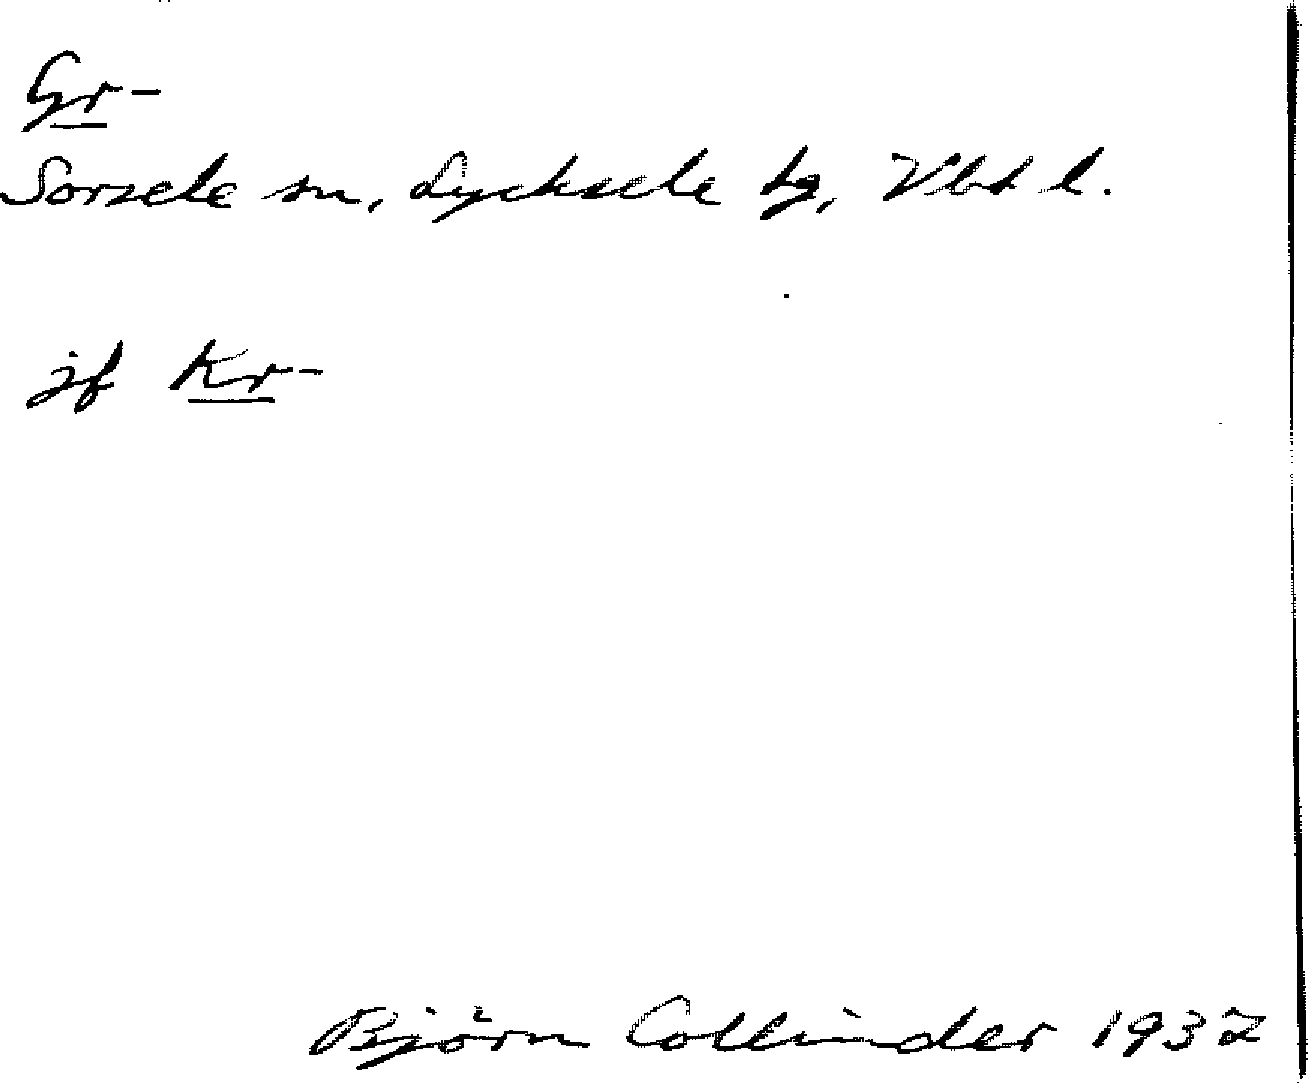 Gr-
Sorsele sn, Lycksele lg, Vbt l.
jf Kr-
Björn Collinder 1932